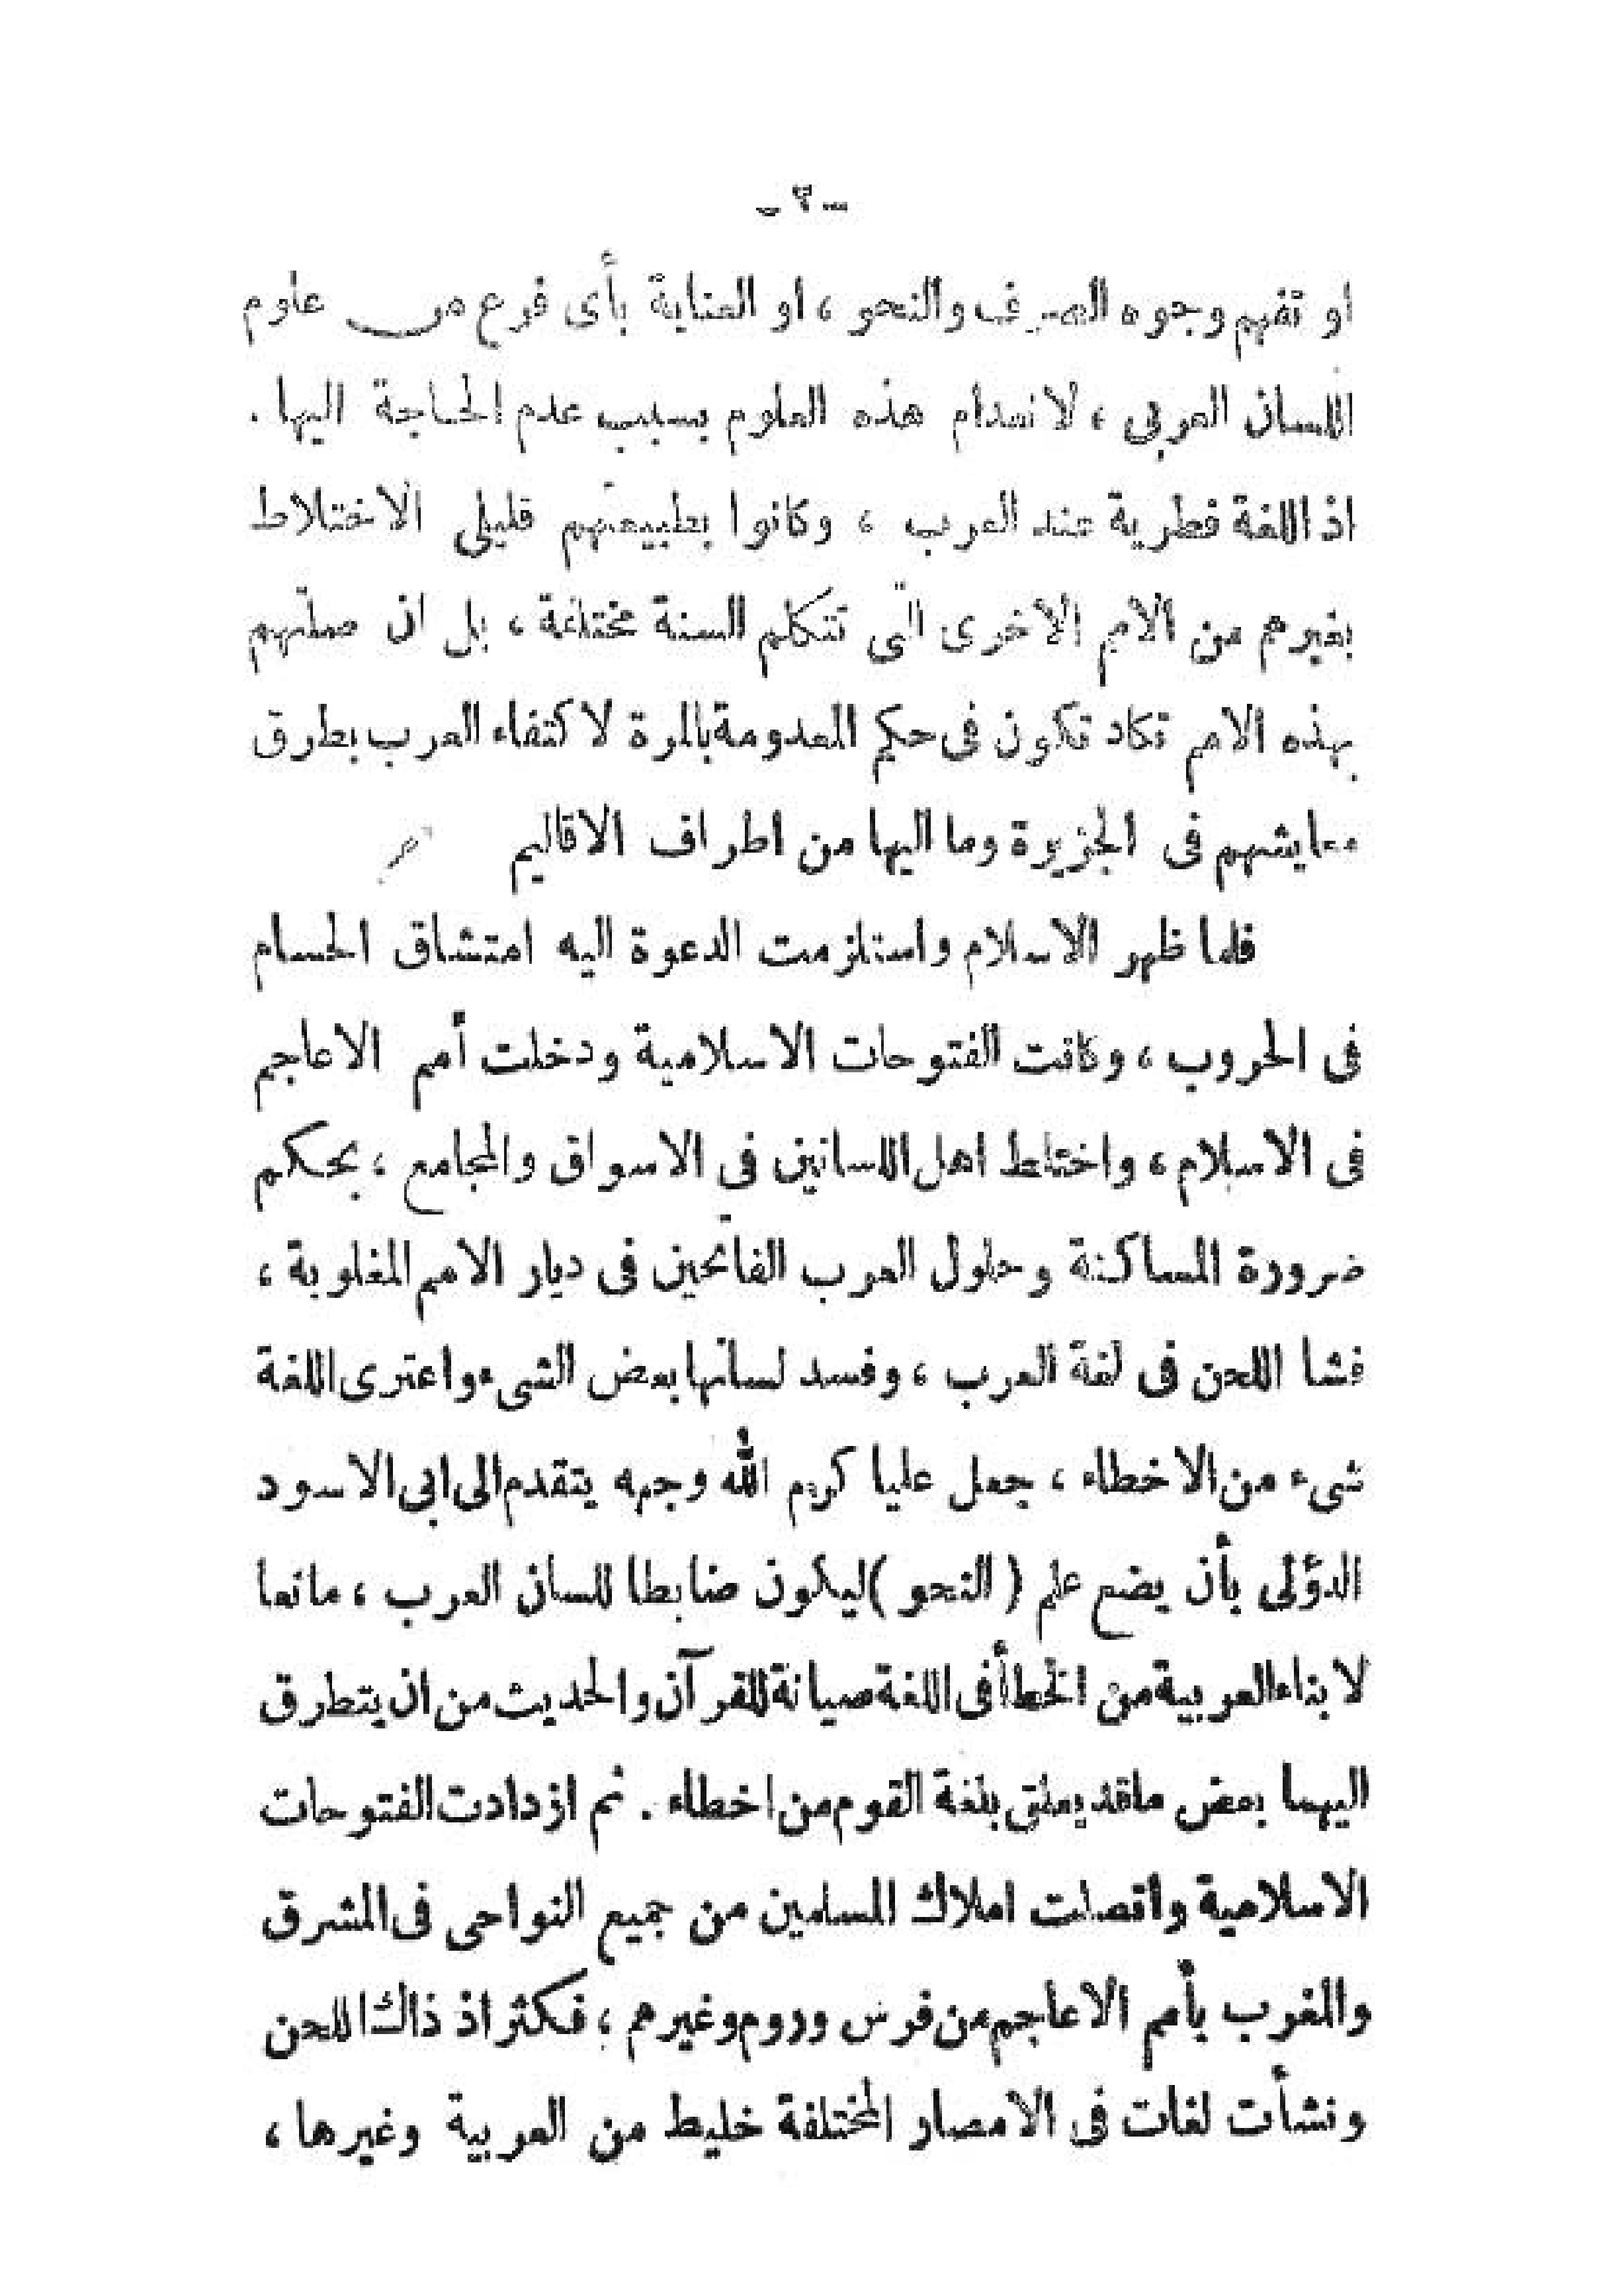 او تفهم وجوه الصرف والنحو ، او العناية بأى فرع من علوم
اللسان العربى ، لانعدام هذه العلوم بسبب عدم الحاجة اليها .
اذ اللغة فطرية عند العرب ، وكانوا بطبيعتهم قليلى الاختلاط
بغيرهم من الامم الاخرى التى تتكلم السنة مختلفة ، بل ان صلتهم
بهذه الامم تكاد تكون فى حكم المعدومة بالمرة لاكتفاء العرب بطرق
معايشهم فى الجزيرة وما اليها من اطراف الاقاليم
فلما ظهر الاسلام واستلزمت الدعوة اليه امتشاق الحسام
فى الحروب ، وكانت الفتوحات الاسلامية ودخلت أمم الاعاجم
فى الاسلام ، واختلط اهل اللسانين فى الاسواق والمجامع ، بحكم
ضرورة المساكنة وحلول العرب الفاتحين فى ديار الامم المغلوبة ،
فشا اللحن فى لغة العرب ، وفسد لسانها بعض الشىء واعترى اللغة
شىء من الاخطاء ، جعل عليا كرم الله وجهه يتقدم الى ابى الاسود
الدؤلى بأن يضع علم ( النحو ) ليكون ضابطا للسان العرب ، مانعا
لابناء العربية من الخطأ فى اللغة صيانة للقرآن والحديث من ان يتطرق
اليهما بعض ماقد يعلق بلغة القوم من اخطاء . ثم ازدادت الفتوحات
الاسلامية واتصلت املاك المسلمين من جميع النواحى فى المشرق
والمغرب بأمم الاعاجم من فرس وروم وغيرهم ، فكثر اذ ذاك اللحن
ونشأت لغات فى الامصار المختلفة خليط من العربية وغيرها ،